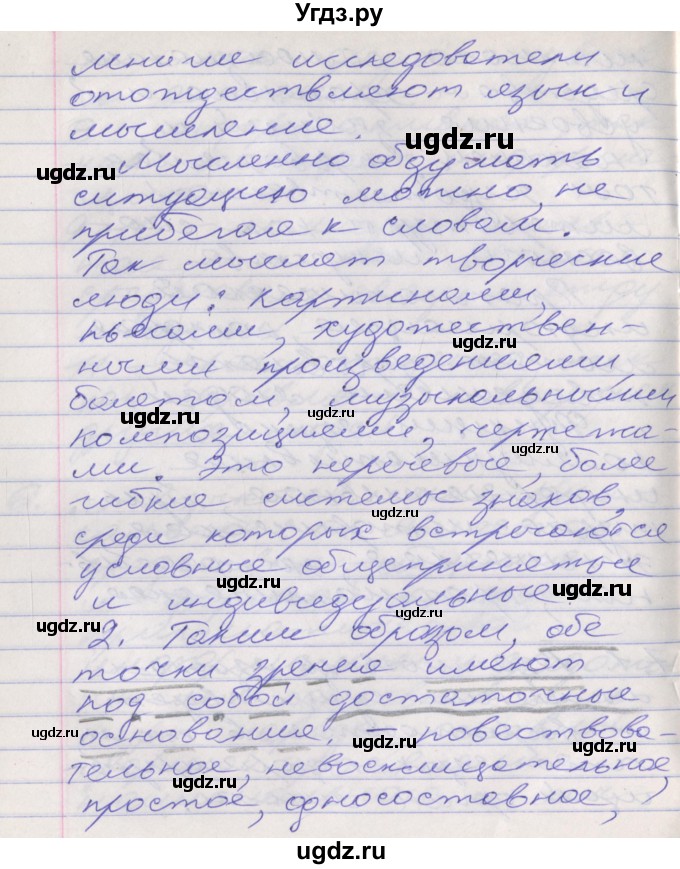 Угдз.ру
многие исследователи
отождествляют язык и
мышление.
ugdz.ru
Мысленно обдумать
ugdz.ru
ситуацию можно, не
прибегая к словам.
Так мыслят творческие
люди: картинами,
пьесами, художествен-
ugdz.ru
ными произведениями,
балетом, музыкальными
ugdz.ru
ugdz.ru
композициями, чертежа-
ми. Это неречевые, более
ugdz.ru
гибкие системы знаков,
среди которых встречаются
ugdz.ru
условные общепринятые
ugdz.ru
и индивидуальные.
ugdz.ru
2. Таким образом, обе
ugdz.ru
точки зрения имеют
под собой достаточные
основания. – повествова-
ugdz.ru
ugdz.ru
ugdz.ru
тельное, невосклицательное,
ugdz.ru
простое, односоставное,
ugdz.ru
ugdz.ru